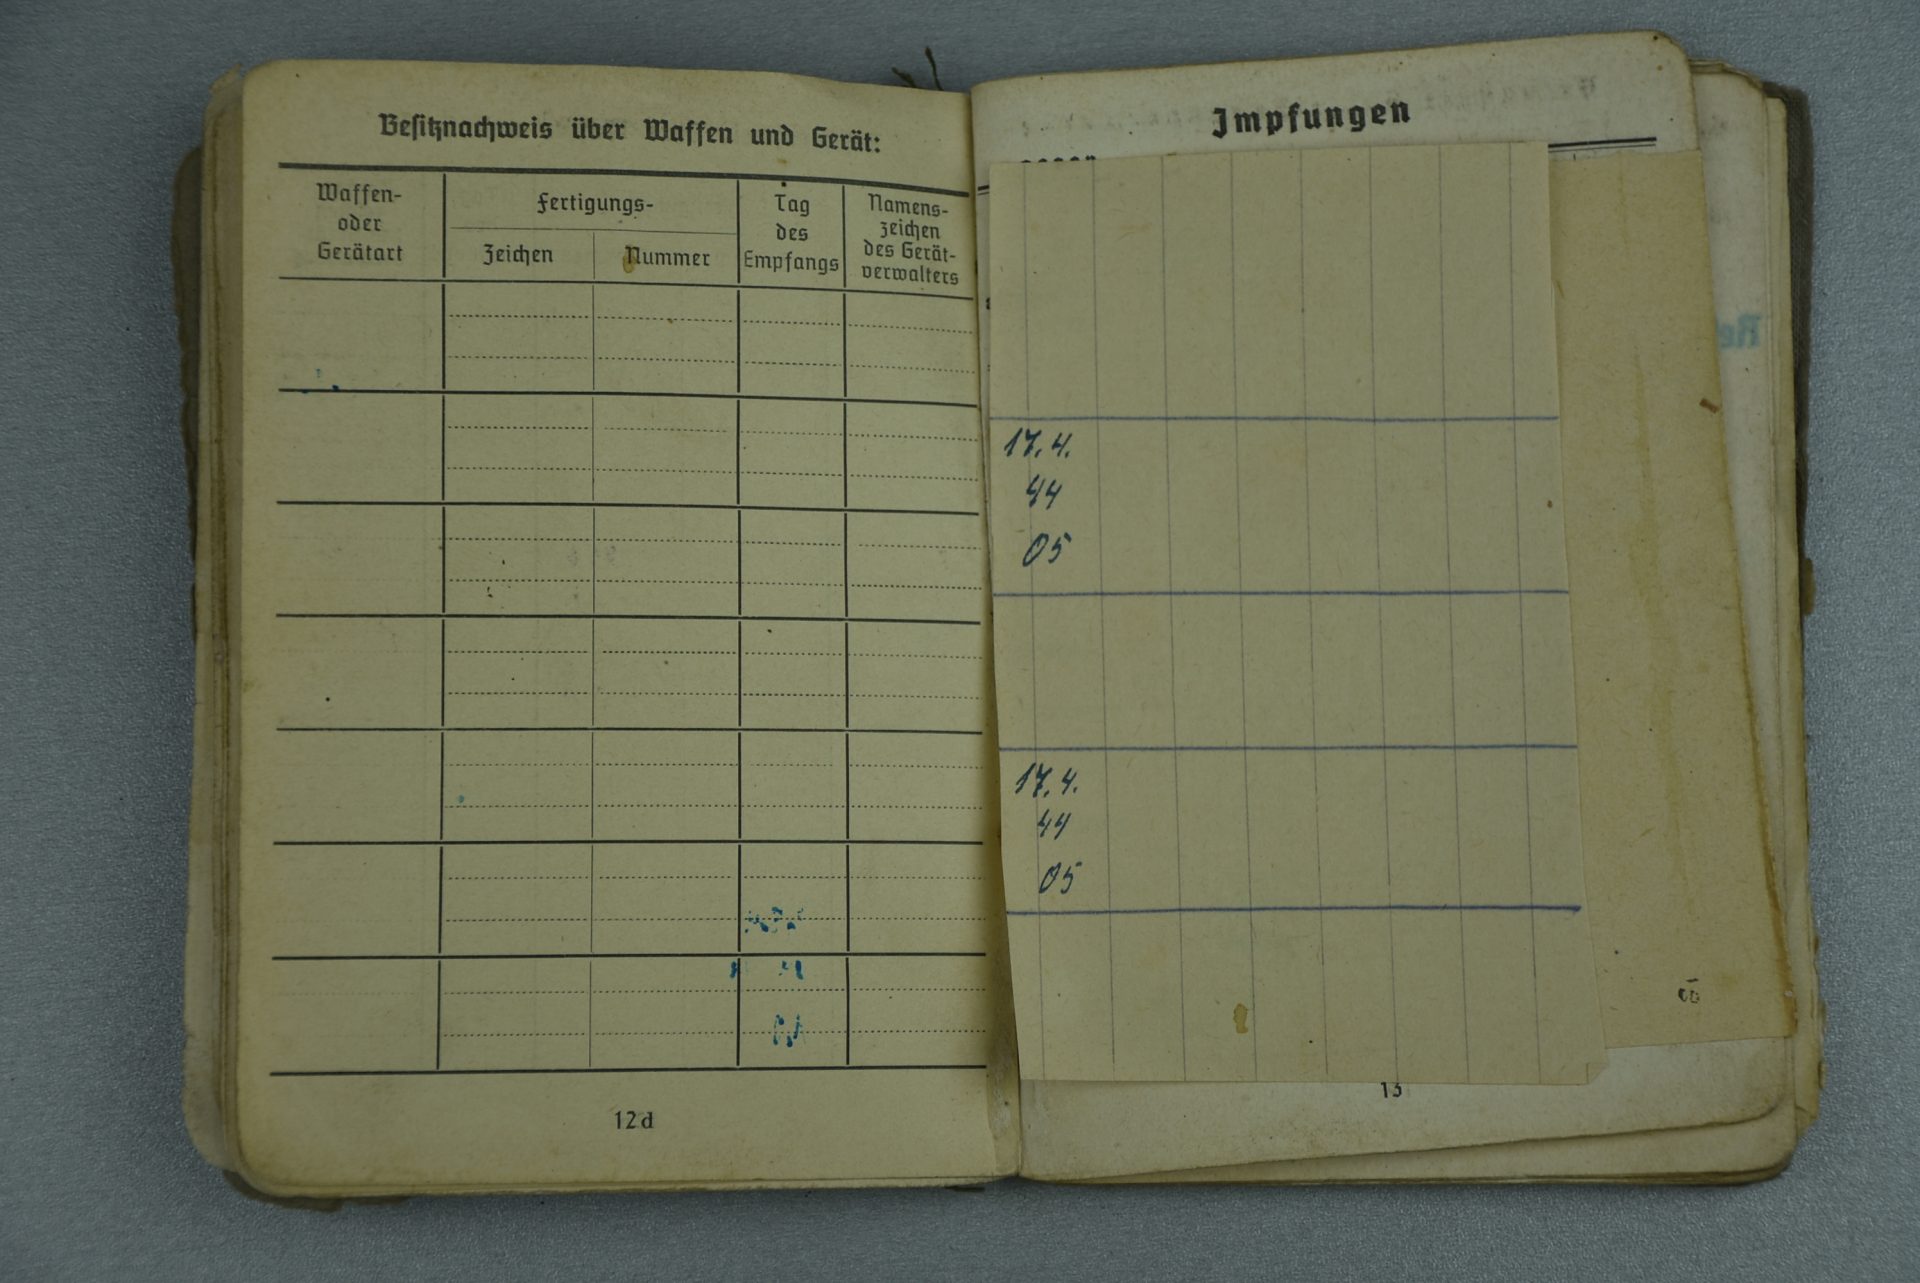 Besitznachweis über Waffen und Gerät:
Waffen-
oder
Gerätart
Fertigungs-
Zeichen
Nummer
Tag
des
Empfangs
Namens-
zeichen
des Gerät-
verwalters
12d
Impfungen
gegen
17.4.
44
05
17.4.
44
05
13